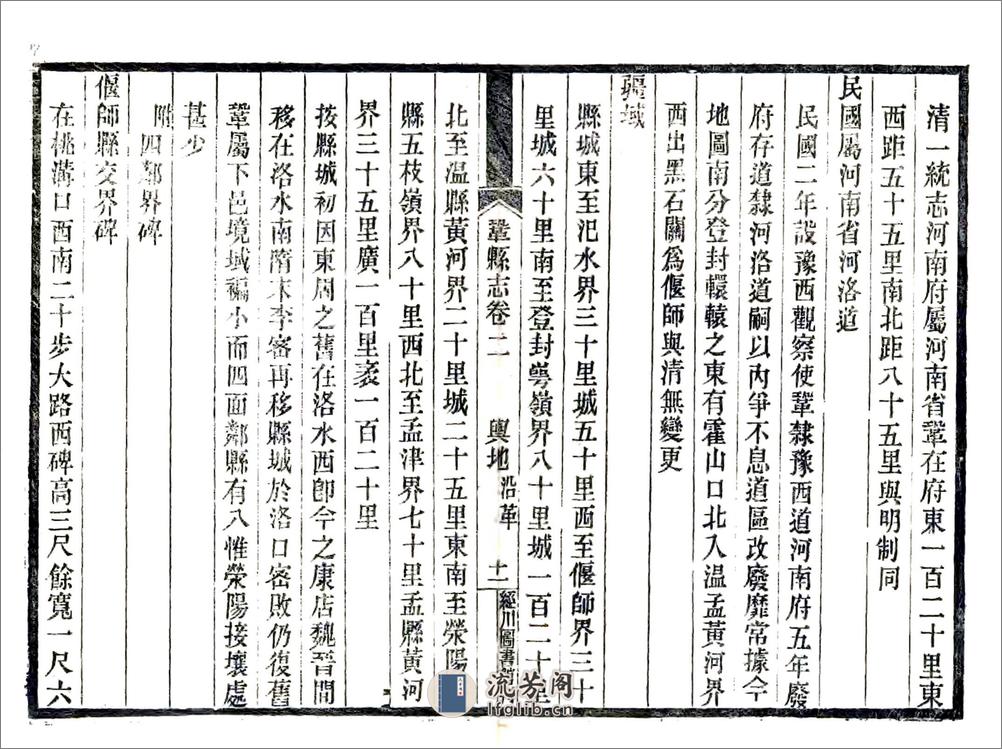 清一統志河南府屬河南省鞏在府東一百二十里東
西距五十五里南北距八十五里與明制同
民國屬河南省河洛道
民國二年設豫西觀察使鞏隸豫西道河南府五年廢
府存道隸河洛道嗣以內爭不息道區改廢靡常據今
地圖南分登封轘轅之東有霍山口北入温孟黃河界
西出黑石關爲偃師與清無變更
疆域
縣城東至汜水界三十里城五十里西至偃師界三十
里城六十里南至登封嶺界八十里城一百二十里
北至温縣黃河界二十里城二十五里東南至滎陽
縣五枝嶺界八十里西北至孟津界七十里孟縣黃河
界三十五里廣一百里袤一百二十里
按縣城初因東周之舊在洛水西卽今之康店魏晉間
移在洛水南隋末李密再移縣城於洛口密敗仍復舊
鞏屬下邑境域褊小而四面鄰縣有八惟滎陽接壤處
甚少
附四鄰界碑
偃師縣交界碑
在桃溝口西南二十步大路西碑高三尺餘寬一尺六
鞏縣志卷二 輿地 沿革 十一 經川圖書館
流芳阁
lfglib.cn